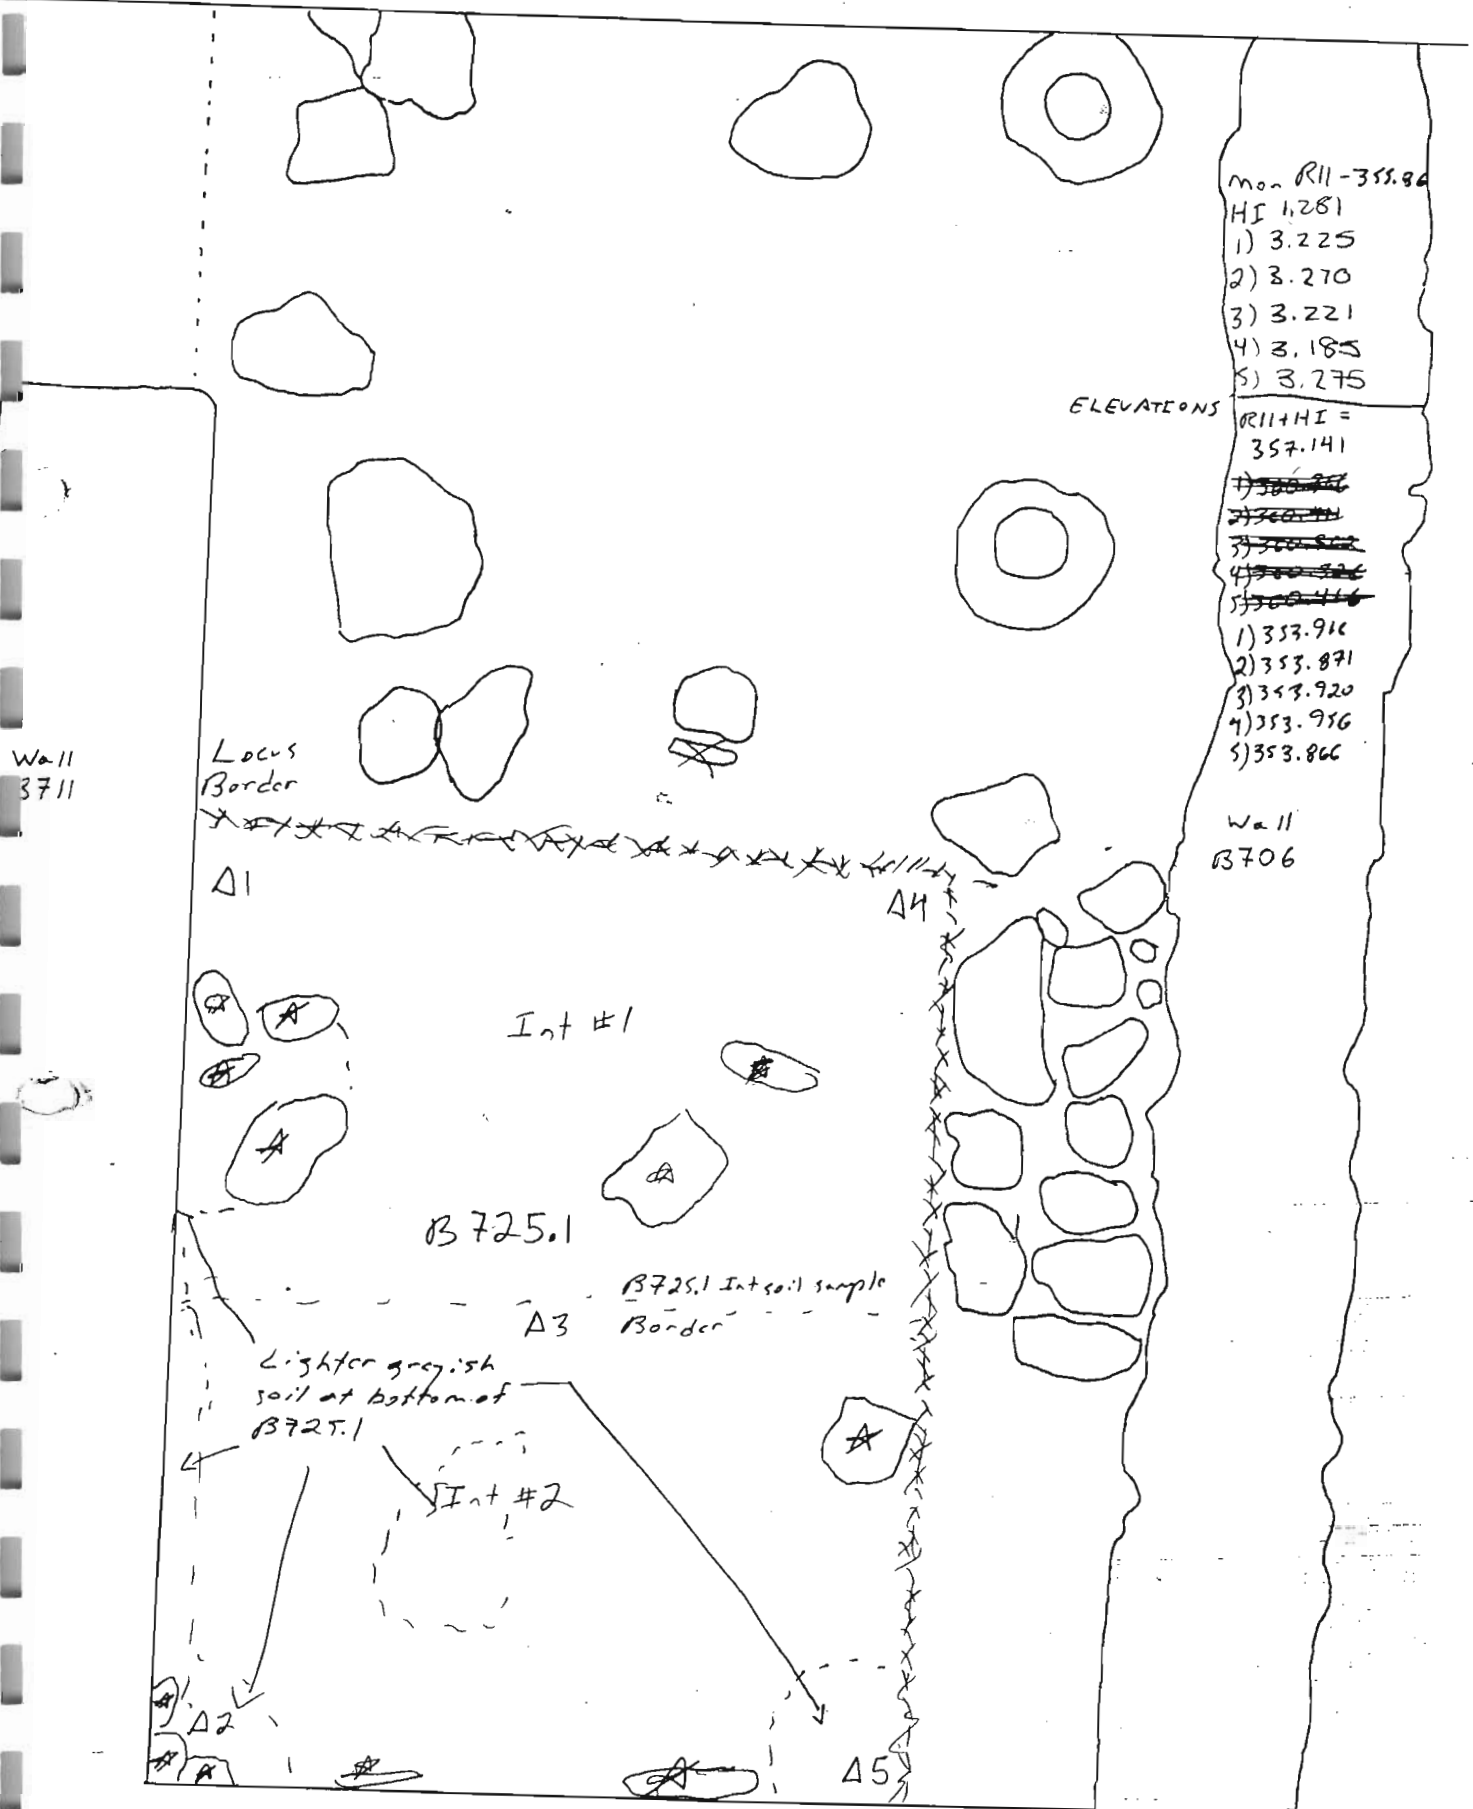 Mon R11-355.86
HI 1.281
1) 3.225
2) 3.270
3) 3.221
4) 3.185
5) 3.275
ELEVATIONS
R11+HI =
357.141
1) 353.916
2) 353.871
3) 353.920
4) 353.956
5) 353.866
Wall
B706
Wall
B711
Locus
Border
Δ1
Δ4
Int #1
B725.1
B725.1 Int soil sample
Border
Δ3
Lighter greyish
soil at bottom of
B725.1
Int #2
Δ2
Δ5